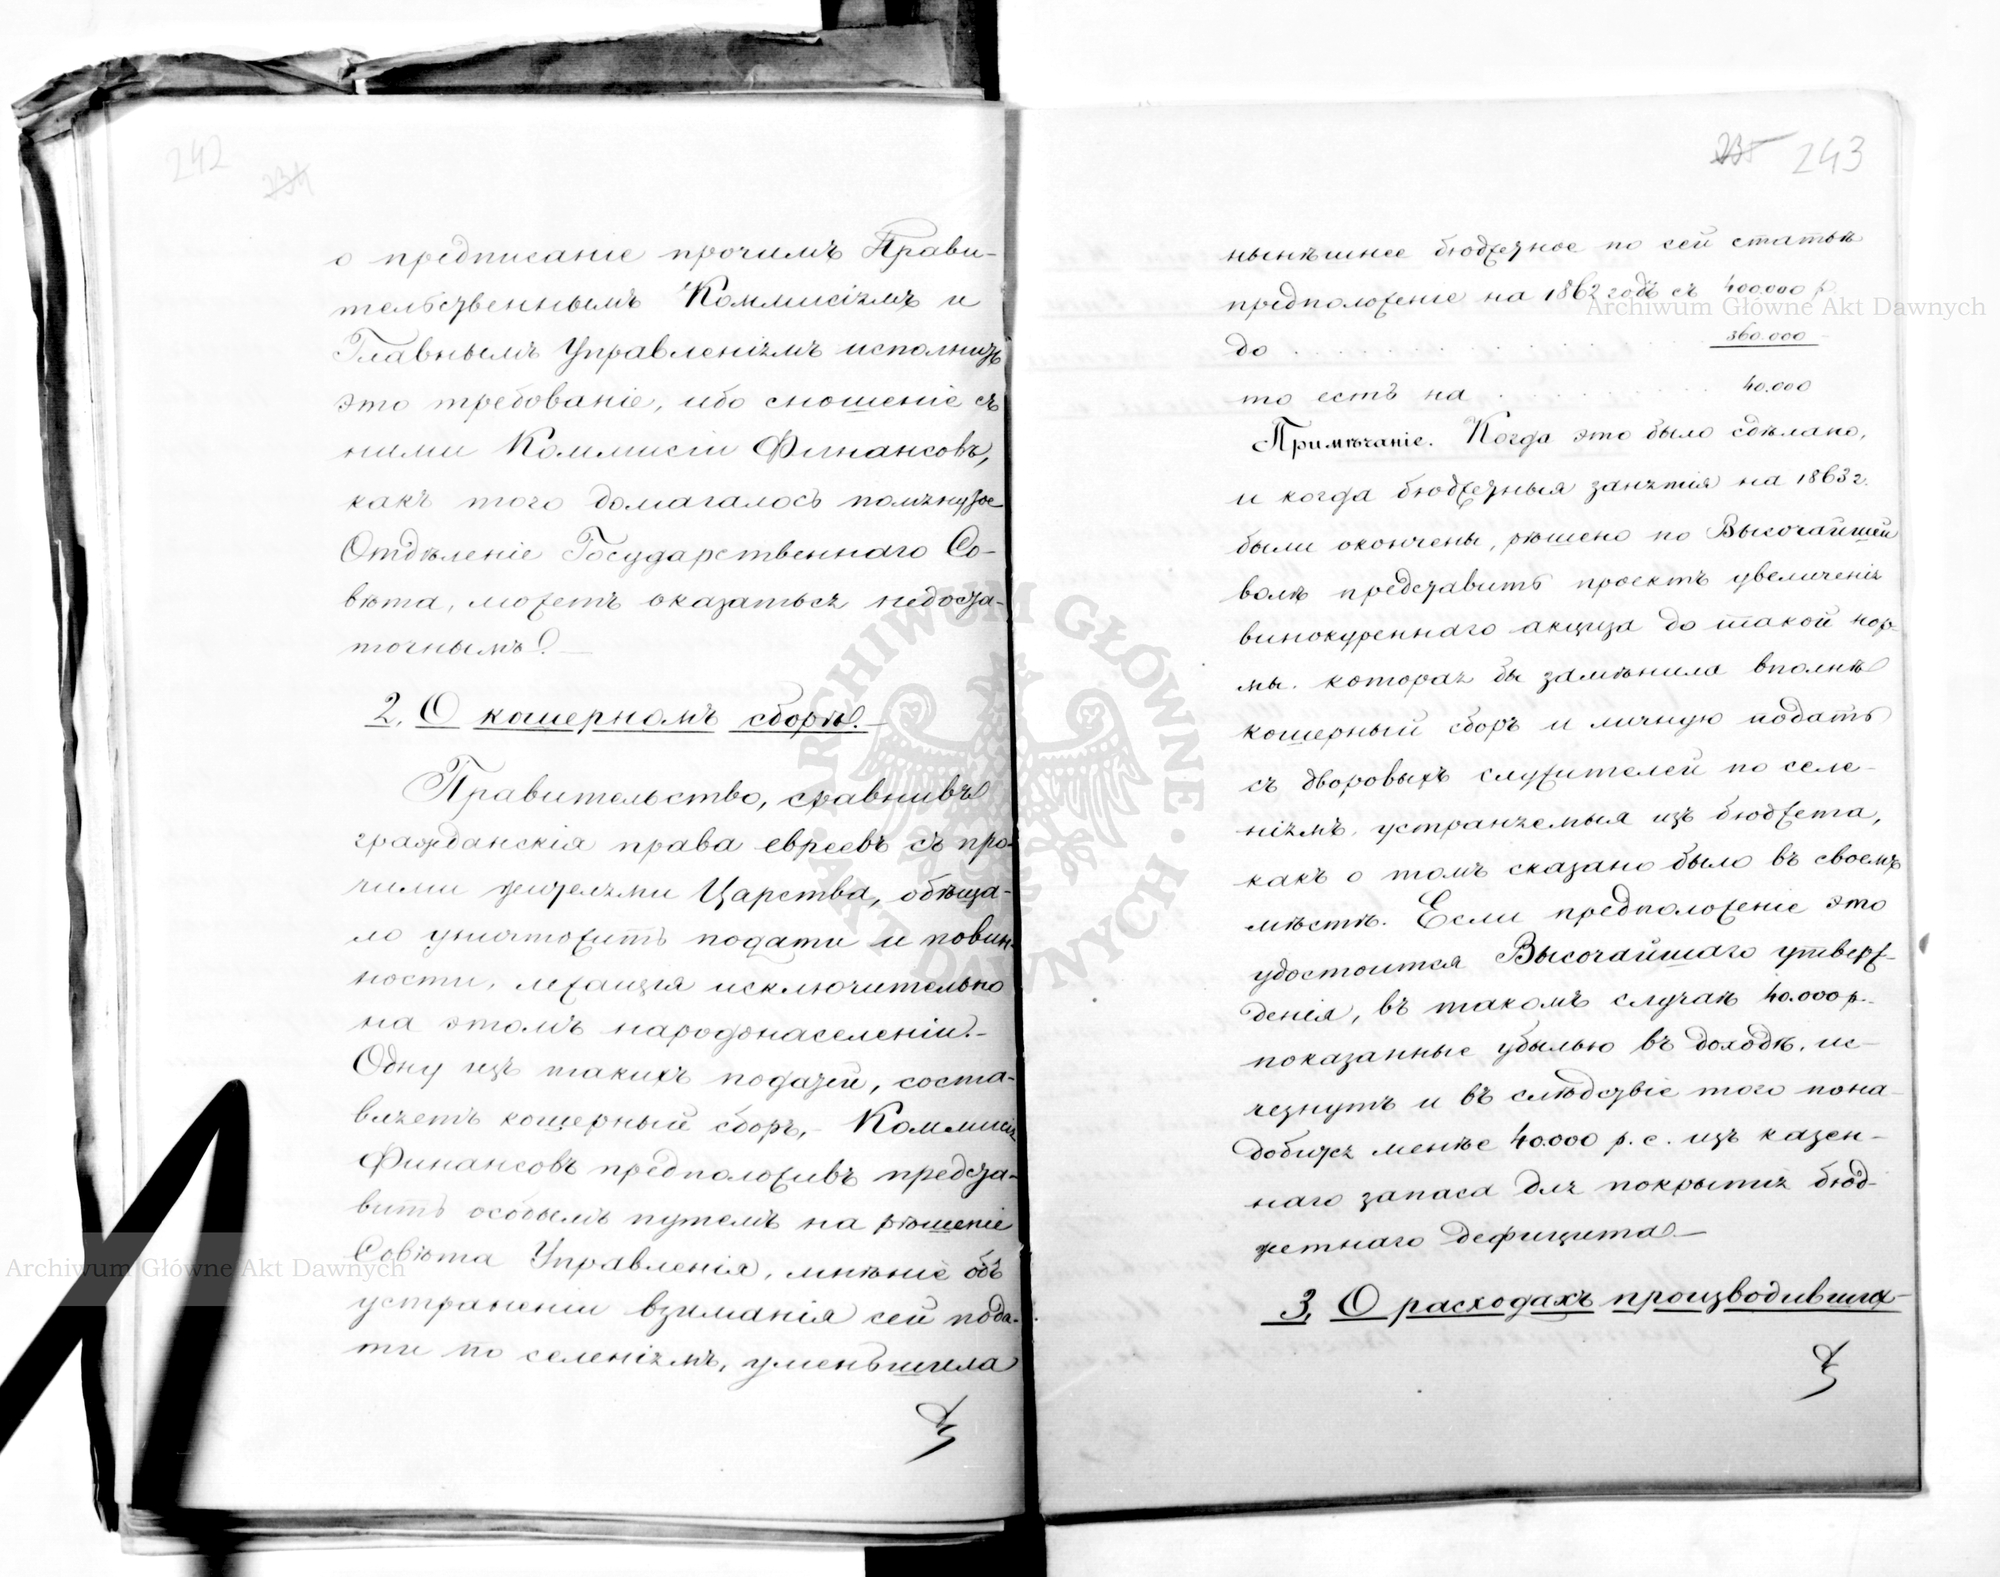 242 234
о предписаніе прочимъ Прави-
тельственнымъ Коммисіямъ и
Главнымъ Управленіямъ исполнить
это требованіе, ибо сношеніе съ
ними Коммисіи Финансовъ,
какъ того домагалось помянутое
Отдѣленіе Государственнаго Со-
вѣта, можетъ оказаться недоста-
точнымъ.—
2. О кошерномъ сборѣ.—
Правительство, сравнивъ
гражданскія права евреевъ съ про-
чими жителями Царства, обѣща-
ло уничтожить подати и повин-
ности, лежащія исключительно
на этомъ народонаселеніи.—
Одну изъ такихъ податей, соста-
вляетъ кошерный сборъ,- Коммисія
Финансовъ предположивъ предста-
вить особымъ путемъ на рѣшеніе
Совѣта Управленія, мнѣніе объ
устраненіи взиманія сей пода-
ти по селеніямъ, уменьшила
235 243
нынѣшнее бюджетное по сей статьѣ
предположеніе на 1862 годъ съ 400.000 р.
до . . . . . . . . 360.000 -
то есть на . . . . . . 40.000
Примѣчаніе. Когда это было сдѣлано,
и когда бюджетныя занятія на 1863 г.
были окончены, рѣшено по Высочайшей
волѣ представить проектъ увеличенія
винокуреннаго акциза до такой нор-
мы. которая бы замѣнила вполнѣ
кошерный сборъ и личную подать
съ дворовыхъ служителей по селе-
ніямъ, устраняемыя изъ бюджета,
какъ о томъ сказано было въ своемъ
мѣстѣ. Если предположеніе это
удостоится Высочайшаго утверж-
денія, въ такомъ случаѣ 40.000 р.
показанные убылью въ доходѣ, ис-
чезнутъ и въ слѣдствіе того пона-
добится менѣе 40.000 р. с. изъ казен-
наго запаса для покрытія бюд-
жетнаго дефицита.—
3. О расходахъ производившихъ-
ARCHIWUM GŁÓWNE · AKT DAWNYCH ·
Archiwum Główne Akt Dawnych
Archiwum Główne Akt Dawnych